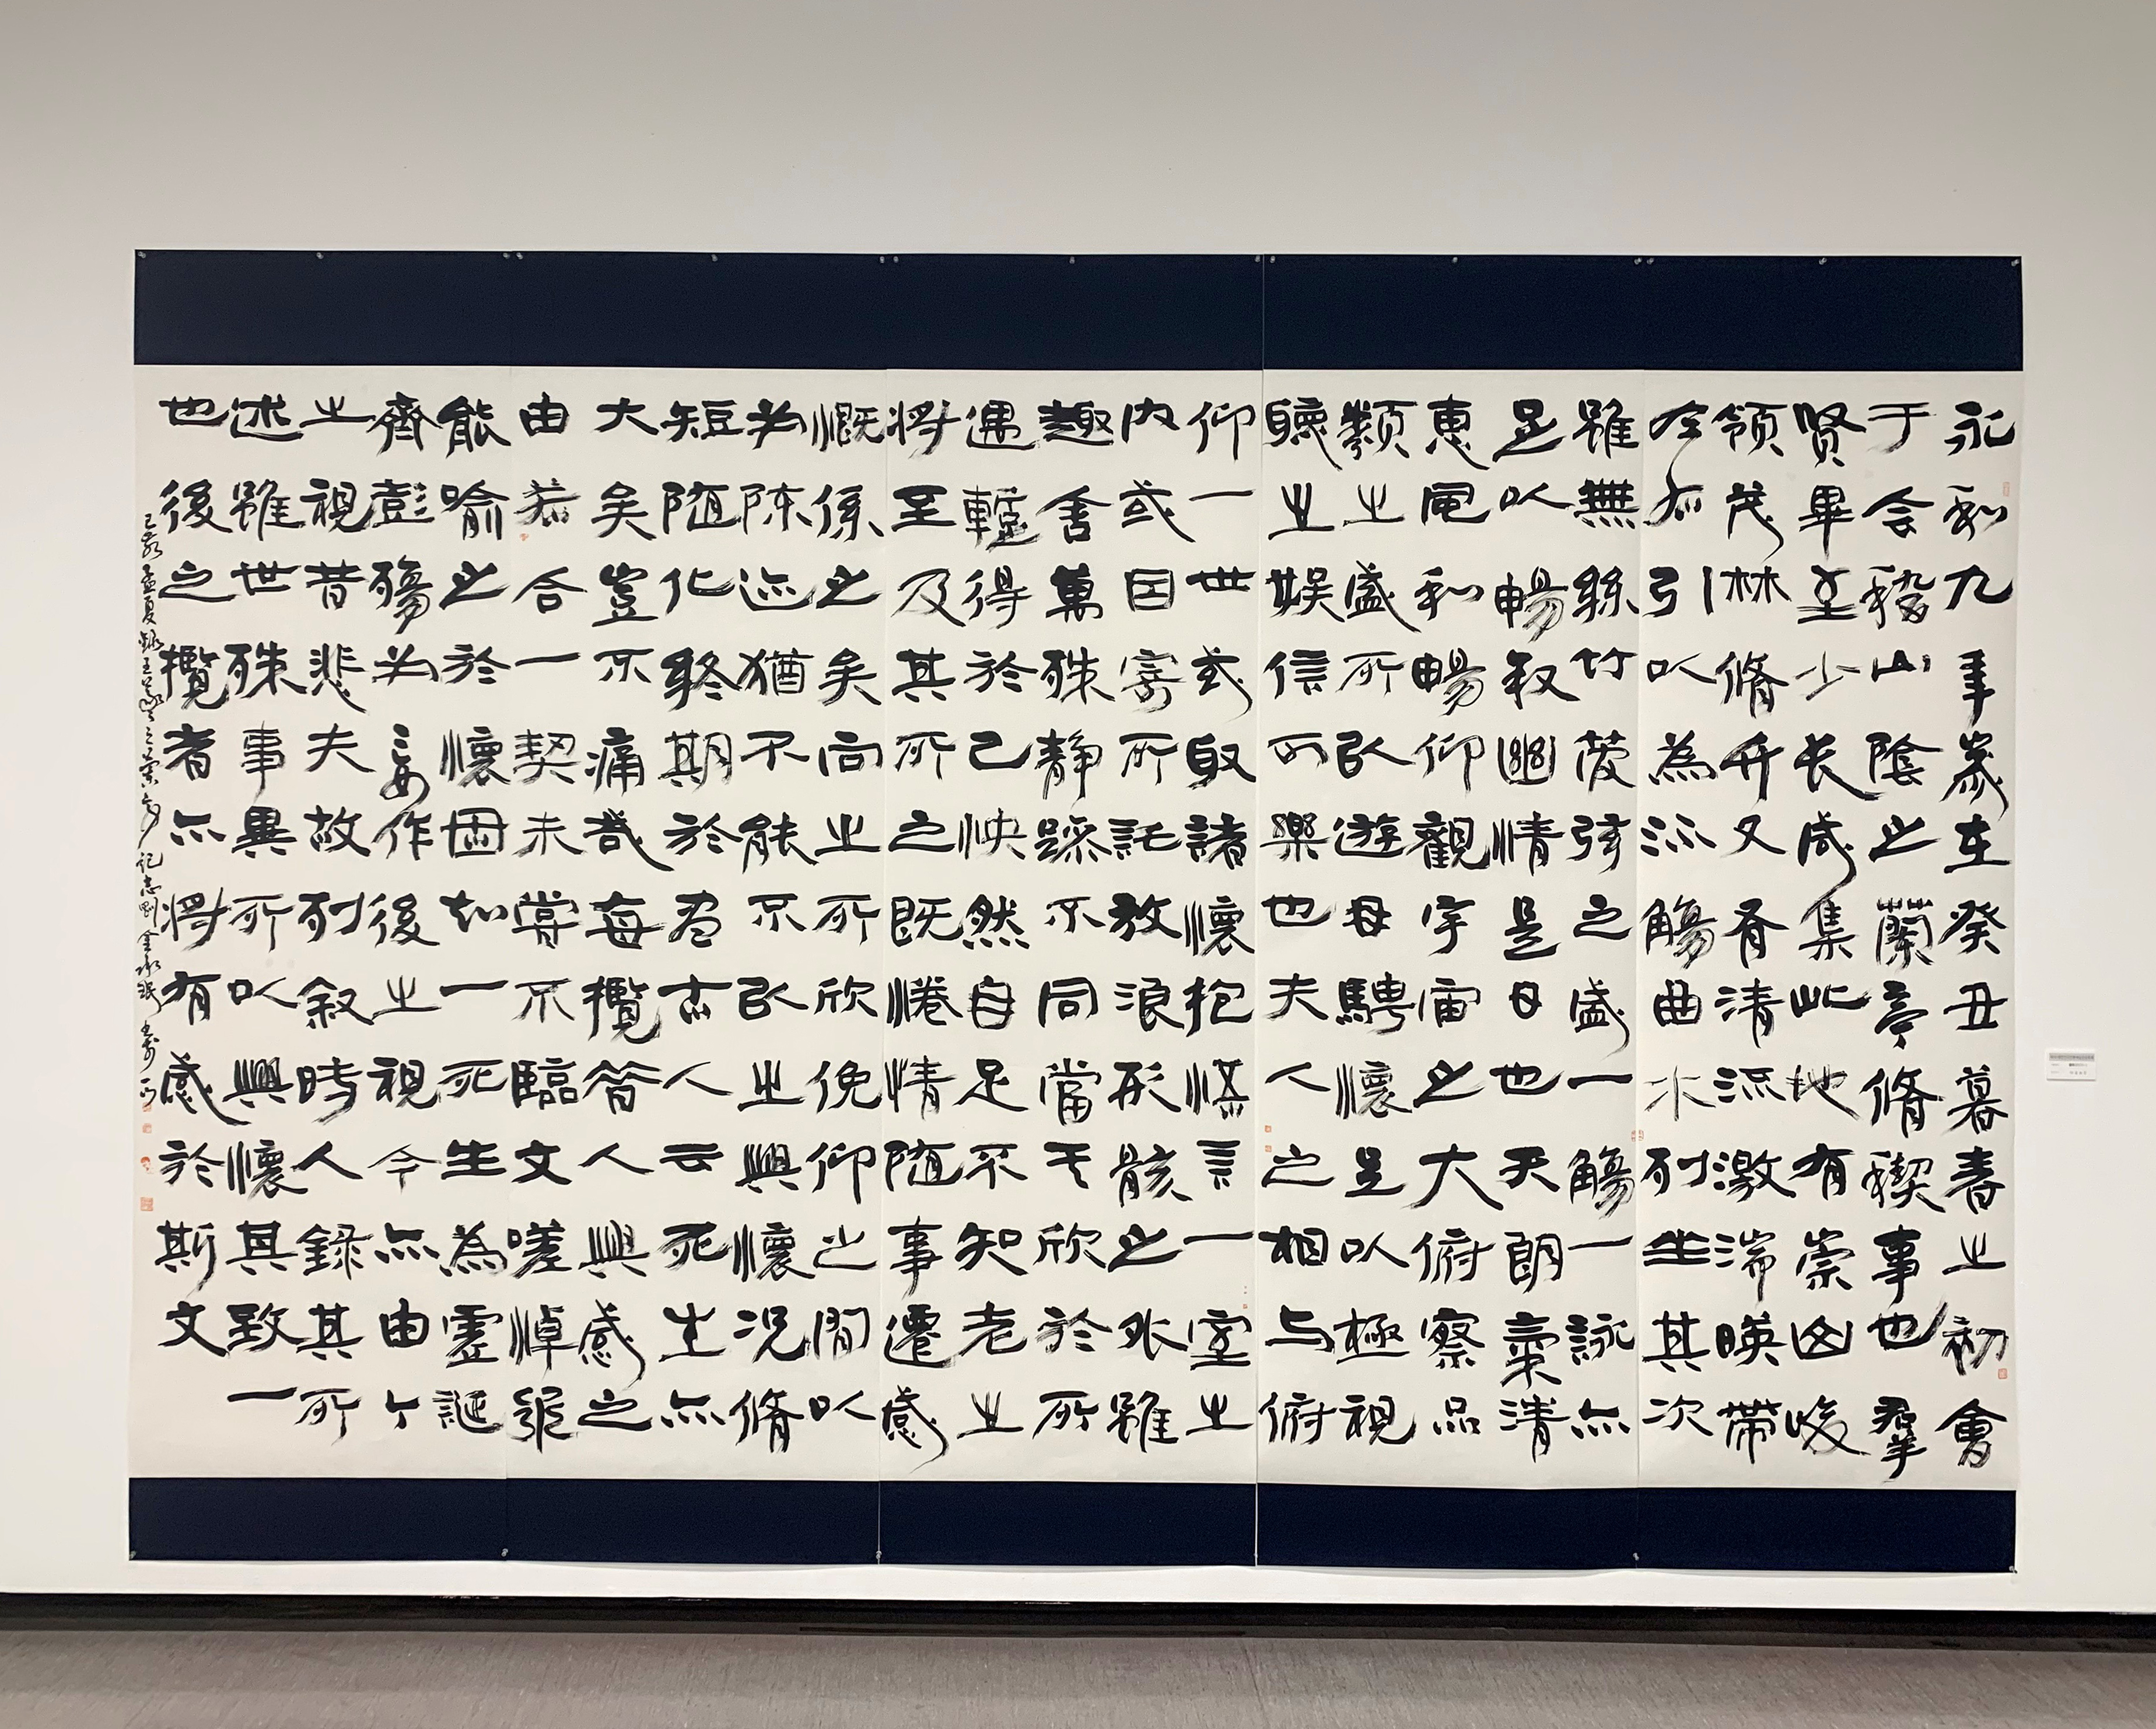 永和九年歲在癸丑暮春之初會
于会稽山陰之蘭亭脩稧事也羣
贤畢至少长咸集此地有崇山峻
領茂林脩竹又有清流激湍暎帶
左右引以為流觴曲水列坐其次
雖無絲竹管弦之盛一觴一詠亦
足以暢叙幽情是日也天朗氣清
惠風和暢仰觀宇宙之大俯察品
類之盛所以遊目騁懷足以極視
聽之娱信可樂也夫人之相与俯
仰一世或取諸懷抱悟言一室之
内或因寄所託放浪形骸之外雖
趣舍萬殊静躁不同當其欣於所
遇蹔得於己怏然自足不知老之
將至及其所之既惓情随事遷感
慨係之矣向之所欣俛仰之間以
為陈迹猶不能不以之興懷况脩
短随化終期於盡古人云死生亦
大矣豈不痛哉每攬昔人興感之
由若合一契未嘗不臨文嗟悼不
能喻之於懷固知一死生為虚誕
齊彭殤為妄作後之視今亦由今
之視昔悲夫故列叙時人録其所
述雖世殊事異所以興懷其致一
也後之攬者亦將有感於斯文
己亥孟夏録王羲之蘭亭記志剛金永